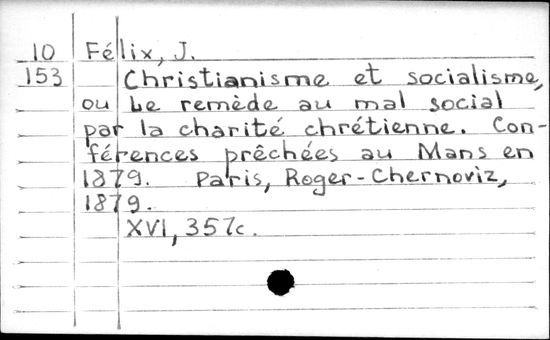 10 Félix, J.
153 Christianisme et socialisme,
ou Le remède au mal social
par la charité chrétienne. Con-
férences prêchées au Mans en
1879. Paris, Roger-Chernoviz,
1879.
XVI, 357c.